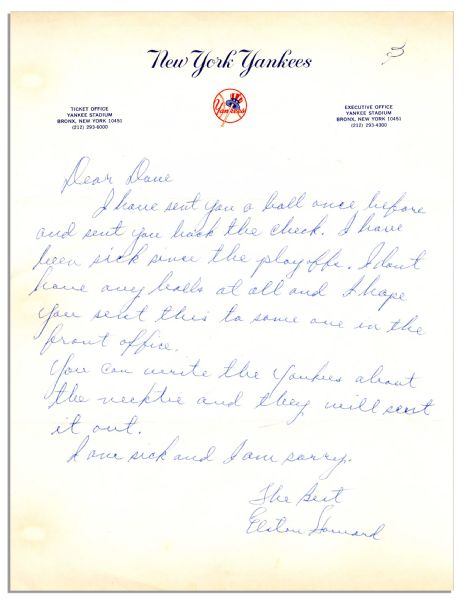 New York Yankees
Yankees
TICKET OFFICE
YANKEE STADIUM
BRONX, NEW YORK 10451
(212) 293-6000
EXECUTIVE OFFICE
YANKEE STADIUM
BRONX, NEW YORK 10451
(212) 293-4300
Dear Dave
I have sent you a ball once before
and sent you back the check. I have
been sick since the playoffs. I dont
have any balls at all and I hope
you sent this to some one in the
front office.
You can write the Yankees about
the necktie and they will sent
it out.
I am sick and I am sorry.
The Best
Elston Howard